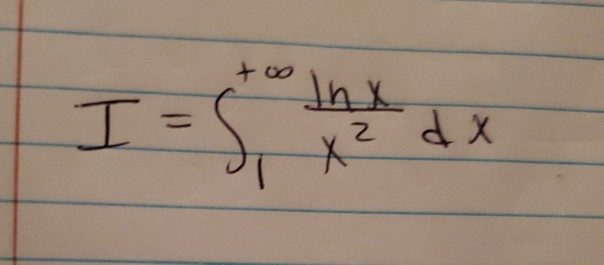 I = ∫₁^{+∞} \frac{ln x}{x²} dx